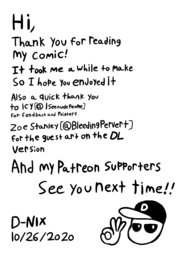 Hi,
Thank you for reading
my comic!
It took me a while to make
So I hope you enjoyed it
Also a quick thank you
to Icy[@ISeenudePeople]
for feedback and Pointers
Zoe Stanley[@BleedingPervert]
for the guest art on the DL
Version
And my Patreon Supporters
See you next time!!
D
D-Nix
10/26/2020